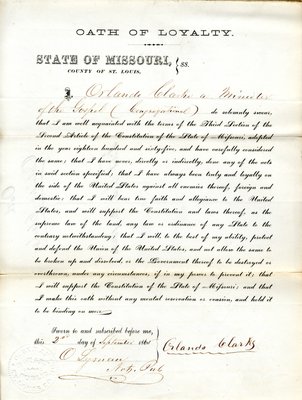 OATH OF LOYALTY.
STATE OF MISSOURI, } ss.
COUNTY OF ST. LOUIS,
I, Orlando Clark a Minister
of the Gospel (Congregational) do solemnly swear,
that I am well acquainted with the terms of the Third Section of the
Second Article of the Constitution of the State of Missouri, adopted
in the year eighteen hundred and sixty-five, and have carefully considered
the same; that I have never, directly or indirectly, done any of the acts
in said section specified; that I have always been truly and loyally on
the side of the United States against all enemies thereof, foreign and
domestic; that I will bear true faith and allegiance to the United
States, and will support the Constitution and laws thereof, as the
supreme law of the land, any law or ordinance of any State to the
contrary notwithstanding; that I will, to the best of my ability, protect
and defend the Union of the United States, and not allow the same to
be broken up and dissolved, or the Government thereof to be destroyed or
overthrown, under any circumstances, if in my power to prevent it; that I
will support the Constitution of the State of Missouri; and that
I make this oath without any mental reservation or evasion, and hold it
to be binding on me.
Sworn to and subscribed before me,
this 2nd day of September 186
Orlando Clark
O Lyman
Notr. Pub